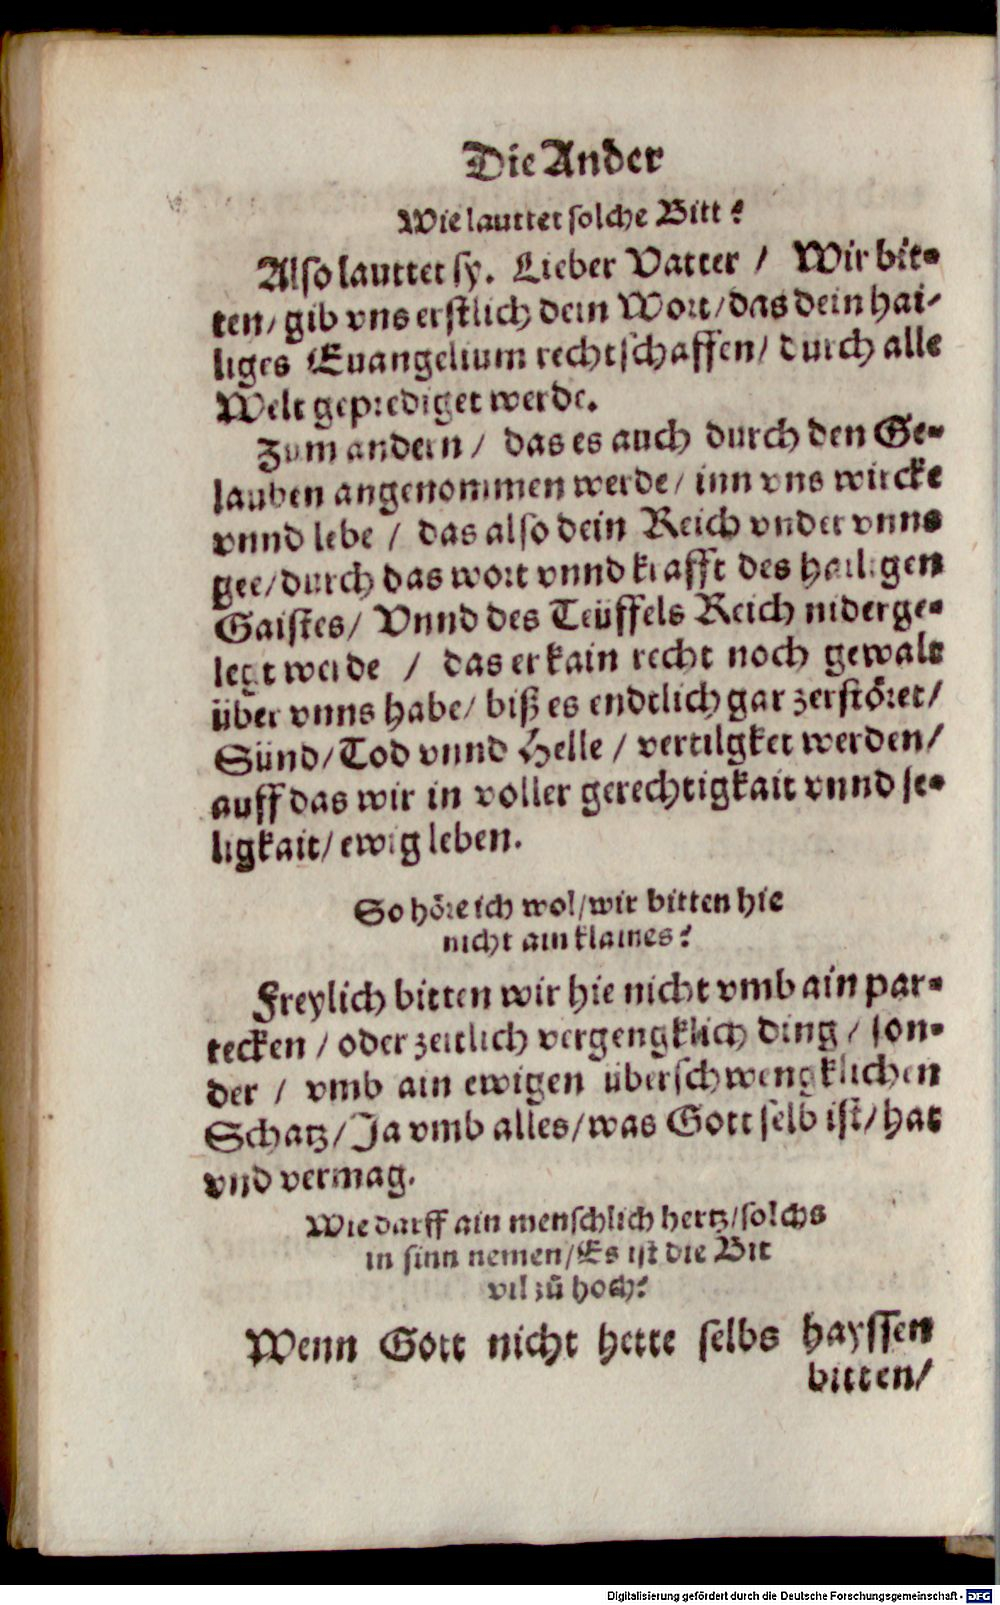 Die Ander
Wie lauttet solche Bitt?
Also lauttet sy. Lieber Vatter / Wir bit-
ten / gib vns erstlich dein Wort / das dein hai-
liges Euangelium rechtschaffen / durch alle
Welt geprediget werde.
Zum andern / das es auch durch den Ge-
lauben angenommen werde / inn vns wircke
vnnd lebe / das also dein Reich vnder vnns
gee / durch das wort vnnd krafft des hailigen
Gaistes / Vnnd des Teüffels Reich niderge-
legt werde / das er kain recht noch gewalt
über vnns habe / biß es endtlich gar zerstöret /
Sünd / Tod vnnd Helle / vertilgket werden /
auff das wir in voller gerechtigkait vnnd se-
ligkait / ewig leben.
So höre ich wol / wir bitten hie
nicht ain klaines?
Freylich bitten wir hie nicht vmb ain par-
tecken / oder zeitlich vergengklich ding / son-
der / vmb ain ewigen überschwengklichen
Schatz / Ja vmb alles / was Gott selb ist / hat
vnd vermag.
Wie darff ain menschlich hertz / solchs
in sinn nemen / Es ist die Bit
vil zů hoch?
Wenn Gott nicht hette selbs hayssen
bitten /
Digitalisierung gefördert durch die Deutsche Forschungsgemeinschaft - DFG